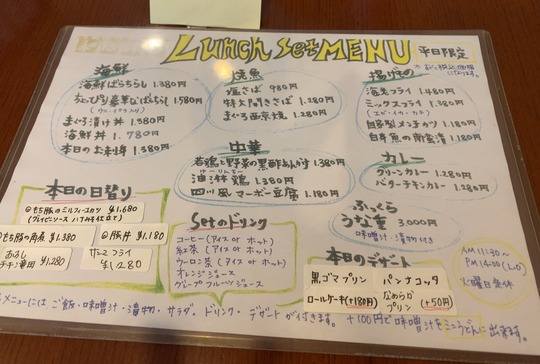 Lunch set MENU
平日限定
海鮮
海鮮ばらちらし 1.380円
ちょびっと豪華なばらちらし 1.580円
(ウニ・イクラ入り)
まぐろ漬け丼 1.580円
海鮮丼 1.780円
本日のお刺身 1.380円
焼魚
塩さば 980円
特大トロさば 1.280円
まぐろ西京焼 1.280円
揚げもの
海老フライ 1.480円
ミックスフライ 1.380円
(エビ・イカ・カキ)
自家製メンチカツ 1.180円
白身魚の南蛮漬 1.180円
中華
若鶏と野菜の黒酢あんかけ 1.380円
油淋鶏 1.380円
四川風マーボー豆腐 1.180円
カレー
グリーンカレー 1.280円
バターチキンカレー 1.280円
ふっくら
うな重 3,000円
味噌汁・漬物付き
本日の日替り
◎もち豚のミルフィーユカツ ¥1,680
◎もち豚の角煮 ¥1,380
◎豚丼 ¥1,180
¥1,280
サンマフライ
¥1,280
Setのドリンク
コーヒー(アイス or ホット)
紅茶(アイス or ホット)
ウーロン茶(アイス or ホット)
オレンジジュース
グレープフルーツジュース
本日のデザート
黒ゴマプリン
パンナコッタ
ロールケーキ(+180円)
なめらかプリン
(+50円)
AM 11:30~
PM 14:00 (L.O)
火曜日定休
メニューには ご飯・味噌汁・漬物・サラダ・ドリンク・デザートが付きます。 +100円で味噌汁をミニうどんに出来ます。